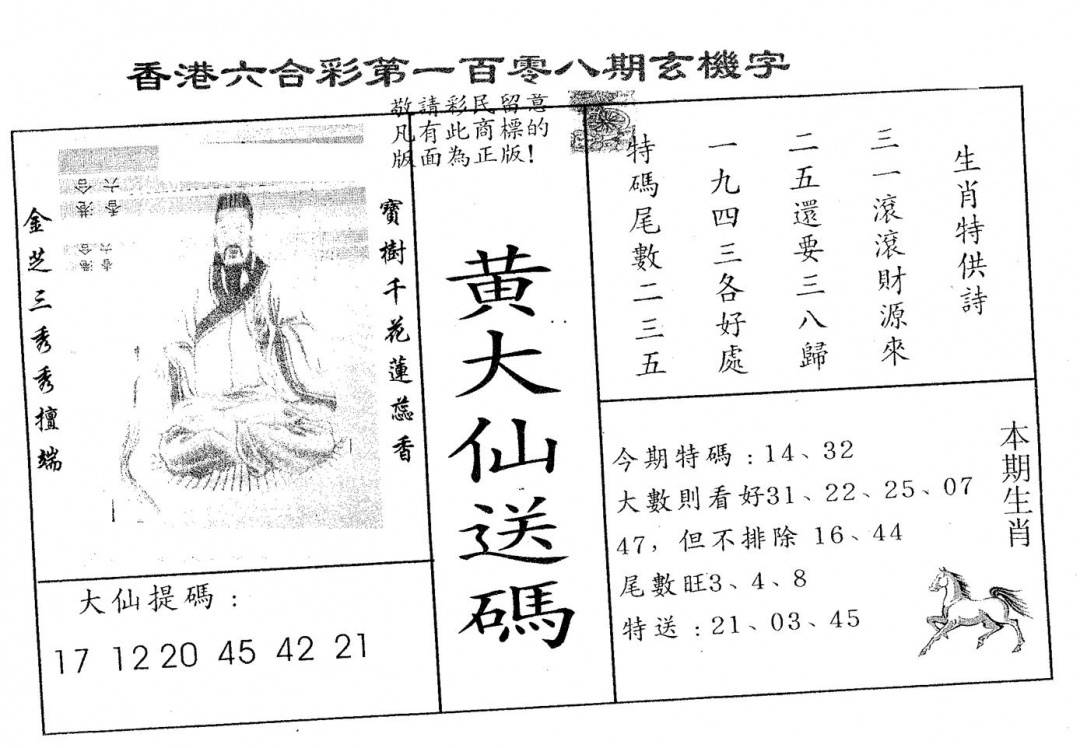 香港六合彩第一百零八期玄機字
敬請彩民留意
凡有此商標的
版面為正版!
生肖特供詩
三一滾滾財源來
二五還要三八歸
一九四三各好處
特碼尾數二三五
黃大仙送碼
寶樹千花蓮蕊香
金芝三秀秀擅端
六合
香港
六合
香港
本期生肖
今期特碼:14、32
大數則看好31、22、25、07
47,但不排除 16、44
尾數旺3、4、8
特送:21、03、45
大仙提碼:
17 12 20 45 42 21